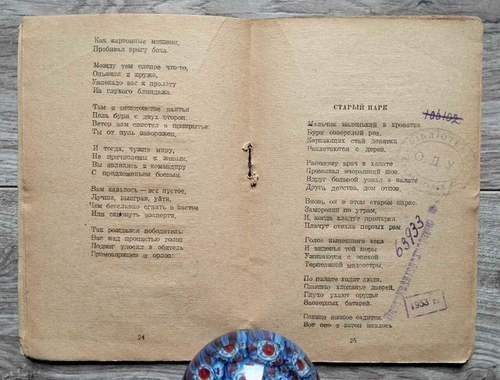 Как картонные мишени,
Пробивал врагу бока.
Между тем слепое что-то,
Опьяняя и кружа,
Увлекало вас к пролету
Из глухого блиндажа.
Там в неистовстве наитья
Пела буря с двух сторон.
Ветер вам свистел в прикрытье:
Ты от пуль заворожен.
И тогда, чужие миру,
Не причислены к живым,
Вы являлись к командиру
С предложеньем боевым.
Вам казалось — все пустое,
Лучше, выиграв, уйти,
Чем бесславно сгнить в застое
Или скиснуть взаперти.
Так рождался победитель:
Вас над пропастью голов
Подвиг уносил в обитель
Громовержцев и орлов.
24
СТАРЫЙ ПАРК
Мальчик маленький в кроватке
Бури озверелый рев,
Каркающих стай девятки
Разлетаются с дерев.
Раненому врач в халате
Промывал вчерашний шов.
Вдруг больной узнал в палате
Друга детства, дом отцов.
Вновь он в этом старом парке.
Заморозки по утрам,
И когда кладут припарки
Плачут стекла первых рам.
Голос нынешнего века
И виденья той поры
Уживаются с опекой
Терпеливой медсестры.
По палате ходят люди,
Слышно хлопанье дверей.
Глухо ухают орудья
Заозерных батарей.
Солнце низкое садится.
Вот оно в затон впилось
25
63933
1953 г.